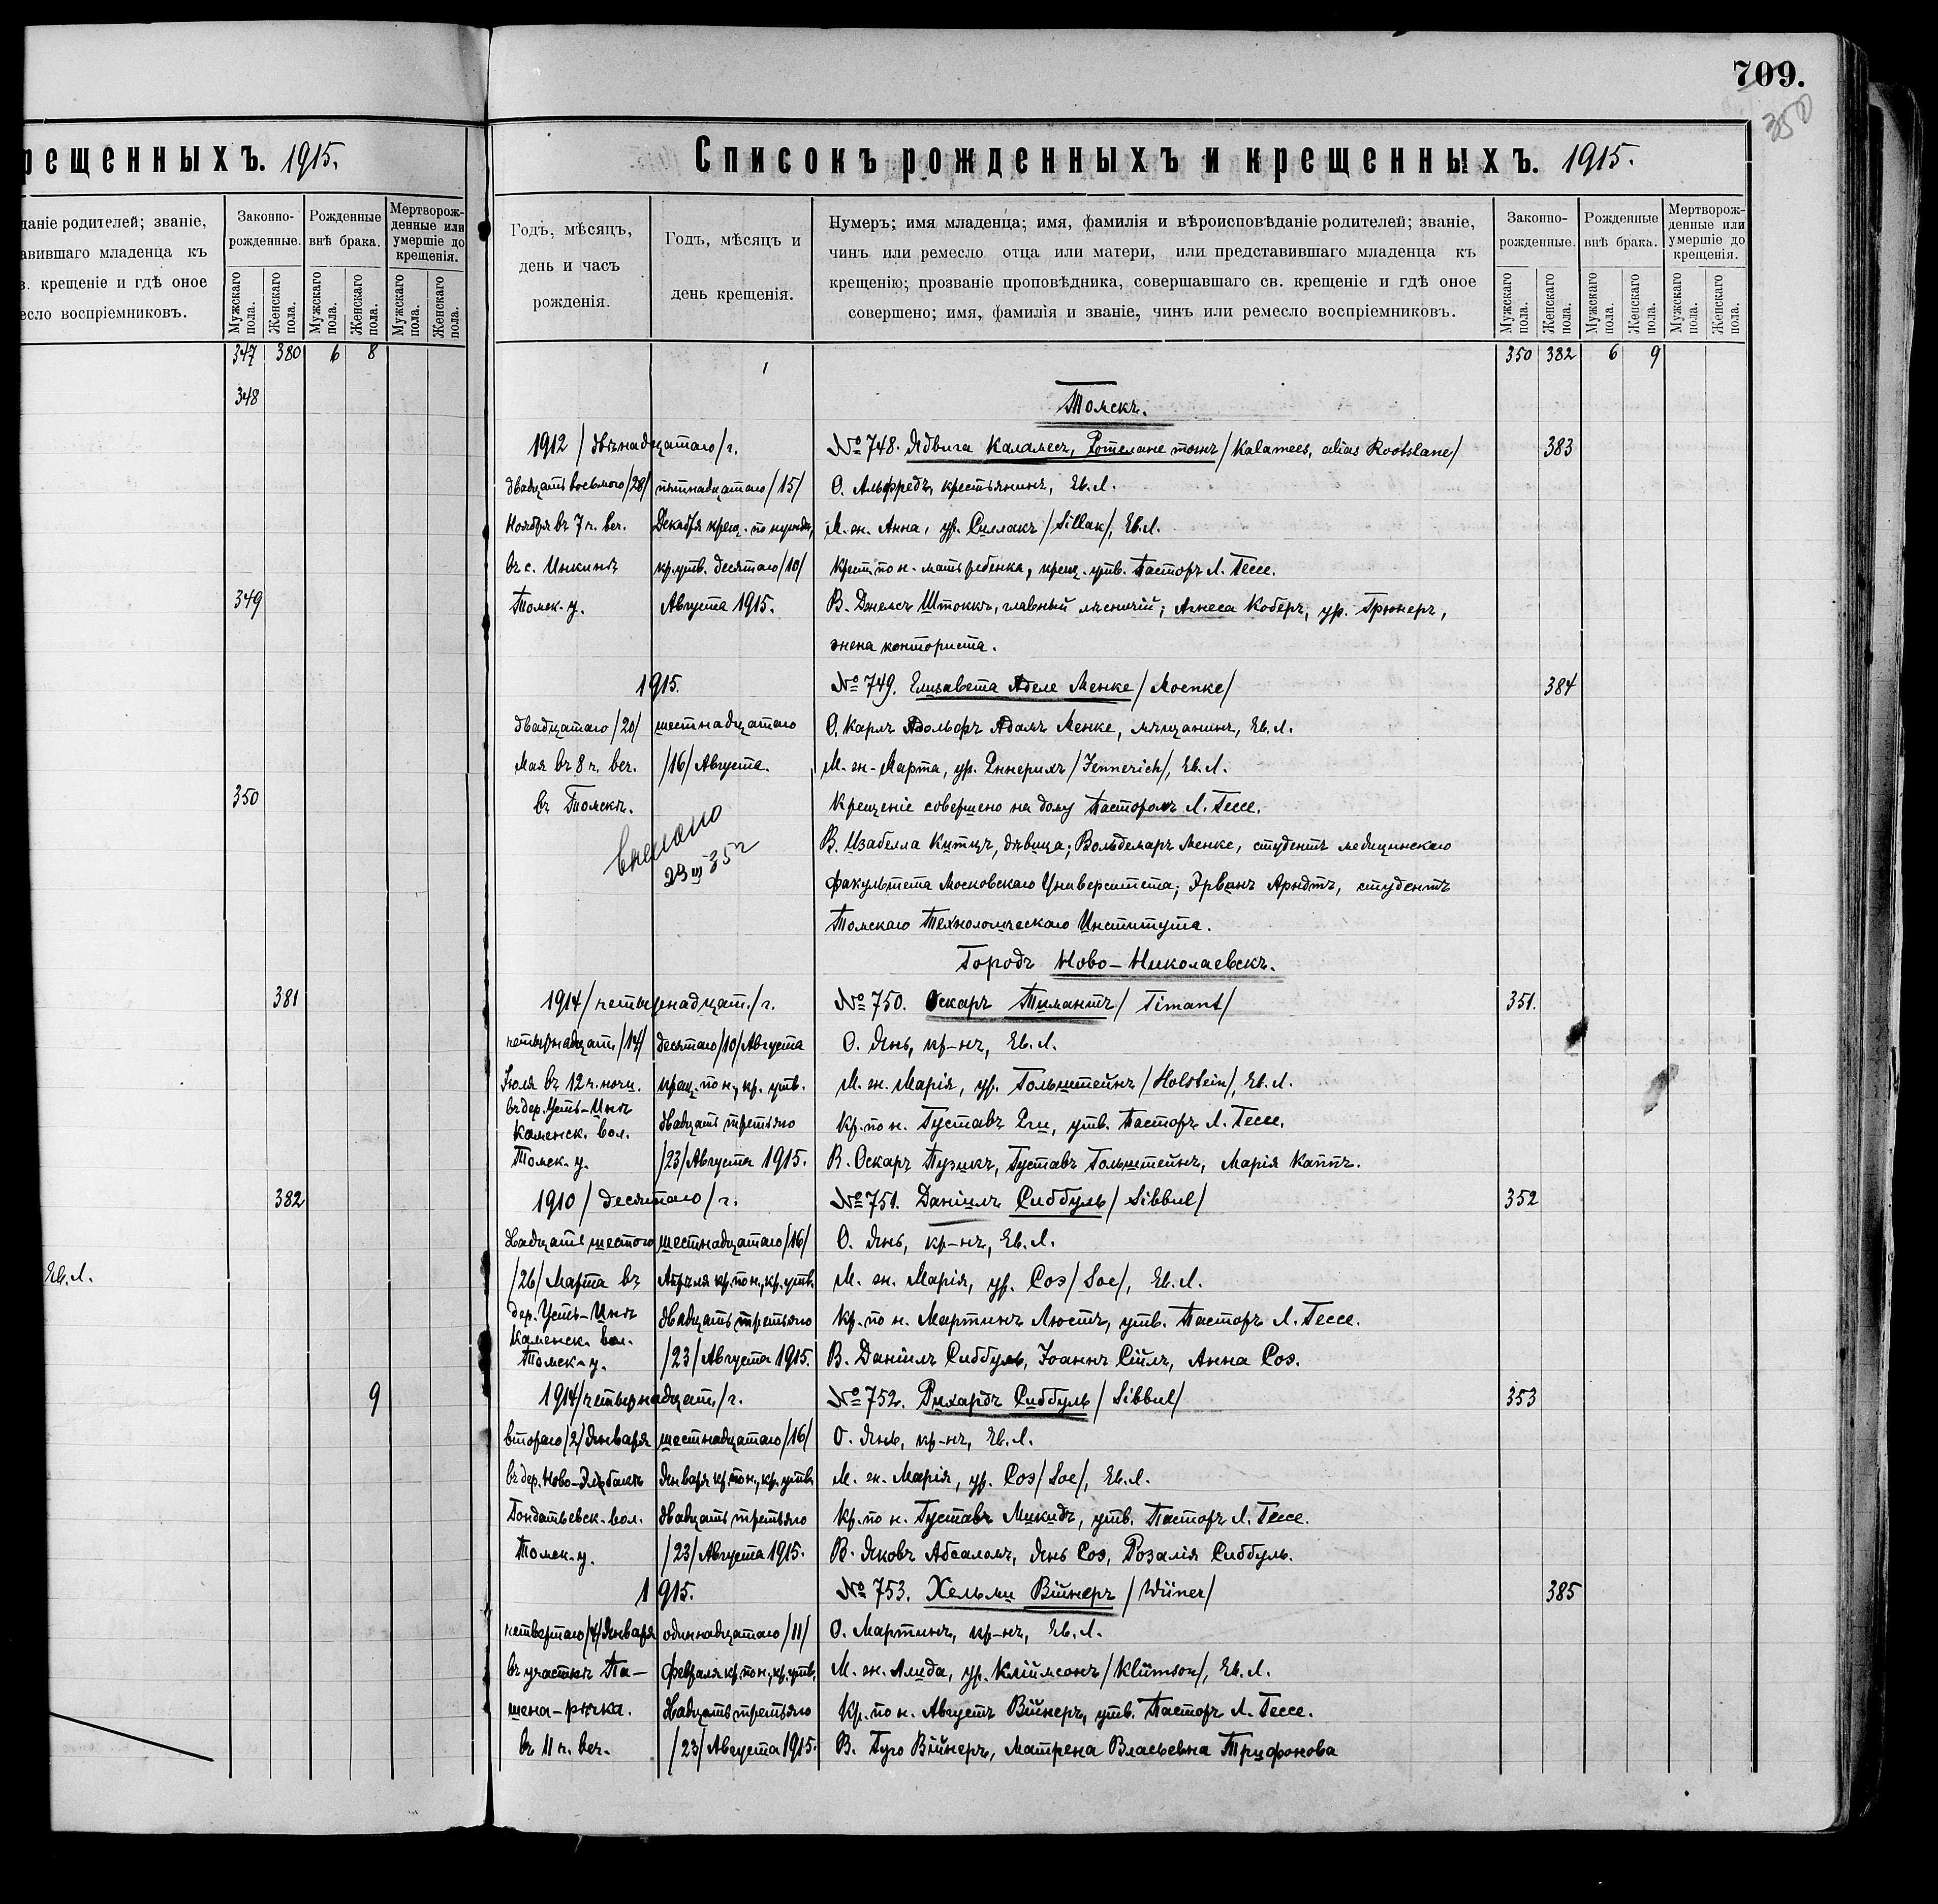 709.
350
рещенныхъ. 1915.
даніе родителей; званіе,
авившаго младенца къ
в. крещеніе и гдѣ оное
есло воспріемниковъ.
Законно-
рожденные.
Рожденные
внѣ брака.
Мертворож-
денные или
умершіе до
крещенія.
Мужскаго пола.
Женскаго пола.
Мужскаго пола.
Женскаго пола.
Мужскаго пола.
Женскаго пола.
347 380 6 8
348
349
350
381
382
Ев. Л.
9
Списокъ рожденныхъ и крещенныхъ. 1915.
Годъ, мѣсяцъ,
день и часъ
рожденія.
Годъ, мѣсяцъ и
день крещенія.
Нумеръ; имя младенца; имя, фамилія и вѣроисповѣданіе родителей; званіе,
чинъ или ремесло отца или матери, или представившаго младенца къ
крещенію; прозваніе проповѣдника, совершавшаго св. крещеніе и гдѣ оное
совершено; имя, фамилія и званіе, чинъ или ремесло воспріемниковъ.
Законно-
рожденные.
Рожденные
внѣ брака.
Мертворож-
денные или
умершіе до
крещенія.
Мужскаго пола.
Женскаго пола.
Мужскаго пола.
Женскаго пола.
Мужскаго пола.
Женскаго пола.
350 382 6 9
Томскъ.
1912 /двѣнадцатаго/ г. № 748. Ядвига Каламесъ, Ротслане тожъ /Kalamees, alias Rootslane/ 383
двадцать восьмого /28/ пятнадцатаго /15/ О. Альфредъ, крестьянинъ, Ев. Л.
Ноября въ 7 ч. веч. Декабря крещ. по нужды, М. ж. Анна, ур. Силлакъ /Sillak/, Ев. Л.
въ с. Инкинѣ кр. утв. десятаго /10/ Крест. по н. мать ребенка, крещ. утв. Пасторъ Л. Гессе.
Томск. у. Августа 1915. В. Джемсъ Штоккъ, главный лѣсничій; Агнеса Коберъ, ур. Грюнеръ,
жена конториста.
1915. № 749. Елизавета Аделе Менке /Moenke/ 384
двадцатаго /20/ шестнадцатаго О. Карлъ Адольфъ Адамъ Менке, мѣщанинъ, Ев. Л.
Мая въ 8 ч. веч. /16/ Августа. М. ж. Марта, ур. Эннерихъ /Jennerich/, Ев. Л.
въ Томскѣ. Крещеніе совершено на дому Пасторомъ Л. Гессе.
23 III 35 г
В. Изабелла Китцъ, дѣвица; Вольдемаръ Менке, студентъ медицинскаго
факультета Московскаго Университета; Эрвинъ Арндтъ, студентъ
Томскаго Технологическаго Института.
Городъ Ново-Николаевскъ.
1914 /четырнадцат./ г. № 750. Оскаръ Тимантъ /Timant/ 351.
четырнадцат. /14/ десятаго /10/ Августа О. Янъ, кр-нъ, Ев. Л.
Іюля въ 12 ч. ночи. крещ. по н., кр. утв. М. ж. Марія, ур. Гольштейнъ /Holstein/, Ев. Л.
въ дер. Усть-Инѣ
Каменск. вол. двадцать третьяго Кр. по н. Густавъ Эги, утв. Пасторъ Л. Гессе.
Томск. у. /23/ Августа 1915. В. Оскаръ Пузикъ, Густавъ Гольштейнъ, Марія Каппъ.
1910 /десятаго/ г. № 751. Даніилъ Сиббуль /Sibbul/ 352
двадцать шестого шестнадцатаго /16/ О. Янъ, кр-нъ, Ев. Л.
/26/ Марта въ Апрѣля кр. по н., кр. утв. М. ж. Марія, ур. Соэ /Soe/, Ев. Л.
дер. Усть-Инѣ двадцать третьяго Кр. по н. Мартинъ Люстъ, утв. Пасторъ Л. Гессе.
Каменск. вол.
Томск. у. /23/ Августа 1915. В. Даніилъ Сиббуль, Іоаннъ Сійлъ, Анна Соэ.
1914 /четырнадцат./ г. № 752. Рихардъ Сиббуль /Sibbul/ 353
второго /2/ Января шестнадцатаго /16/ О. Янъ, кр-нъ, Ев. Л.
въ дер. Ново- Января кр. по н., кр. утв. М. ж. Марія, ур. Соэ /Soe/, Ев. Л.
Гондатьевск. вол. двадцать третьяго Кр. по н. Густавъ Микидъ, утв. Пасторъ Л. Гессе.
Томск. у. /23/ Августа 1915. В. Яковъ Абсаломъ, Янъ Соэ, Розалія Сиббуль.
1915. № 753. Хельми Війнеръ /Wiiner/ 385
четвертаго /4/ Января одиннадцатаго /11/ О. Мартинъ, кр-нъ, Ев. Л.
въ участкѣ Па- Февраля кр. по н., кр. утв. М. ж. Алида, ур. Кліймсонъ /Kliimson/, Ев. Л.
шена-рѣчка. двадцать третьяго Кр. по н. Августъ Війнеръ, утв. Пасторъ Л. Гессе.
въ 11 ч. веч. /23/ Августа 1915. В. Гуго Війнеръ, Матрена Власьевна Труфонова